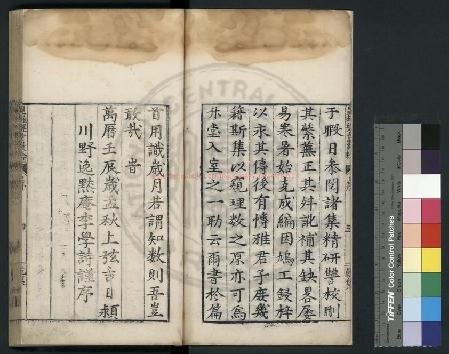 于暇日參閱諸集精研讐校刪
其縈蕪正其舛訛補其缺畧歷
易寒暑始克成編因鳩工鋟梓
以永其傳後有博雅君子庶幾
籍斯集以窺理數之原亦可為
升堂入室之一助云爾書於篇
首用識歲月若謂知數則吾豈
敢哉 旹
萬曆壬辰歲孟秋上弦吉日潁
川野逸默菴李學詩謹序
CENTRAL
TIFFEN Color Control Patches